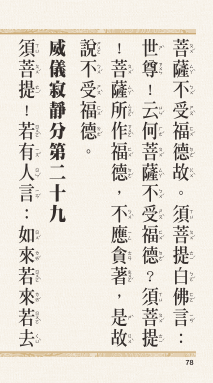 菩薩不受福德故。須菩提白佛言：
世尊！云何菩薩不受福德？須菩提
！菩薩所作福德，不應貪著，是故
說不受福德。
威儀寂靜分第二十九
須菩提！若有人言：如來若來若去
78